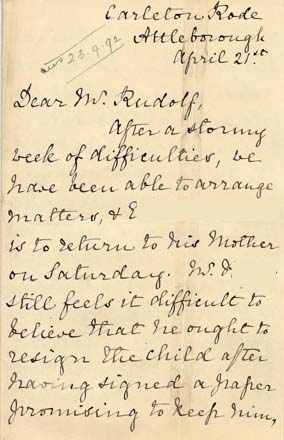 Carleton Rode
Attleborough
April 21st
ans 23.4.92
Dear Mr. Rudolf,
After a stormy
week of difficulties, we
have been able to arrange
matters, & E
is to return to his Mother
on Saturday. Mr. F.
still feels it difficult to
believe that he ought to
resign the child after
having signed a paper
promising to keep him,